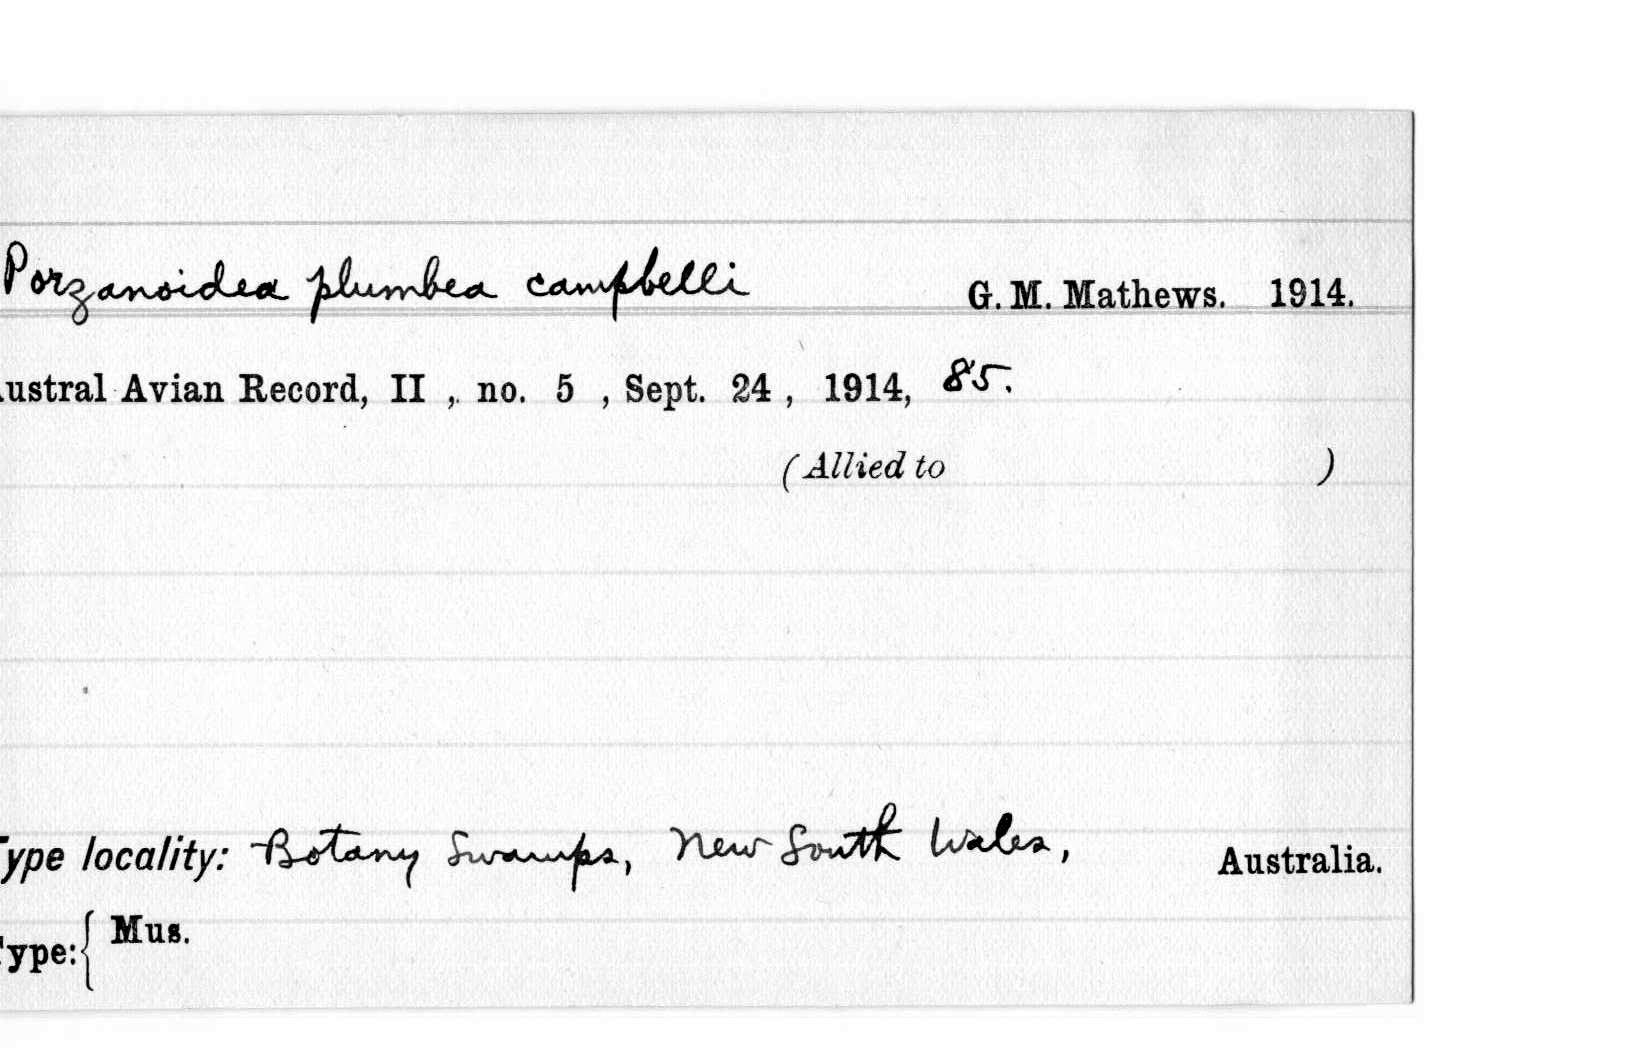 Porzanoidea plumbea campbelli G. M. Mathews. 1914.
ustral Avian Record, II , no. 5 , Sept. 24 , 1914, 85.
(Allied to )
Type locality: Botany Swamps, New South Wales, Australia.
Type: { Mus.